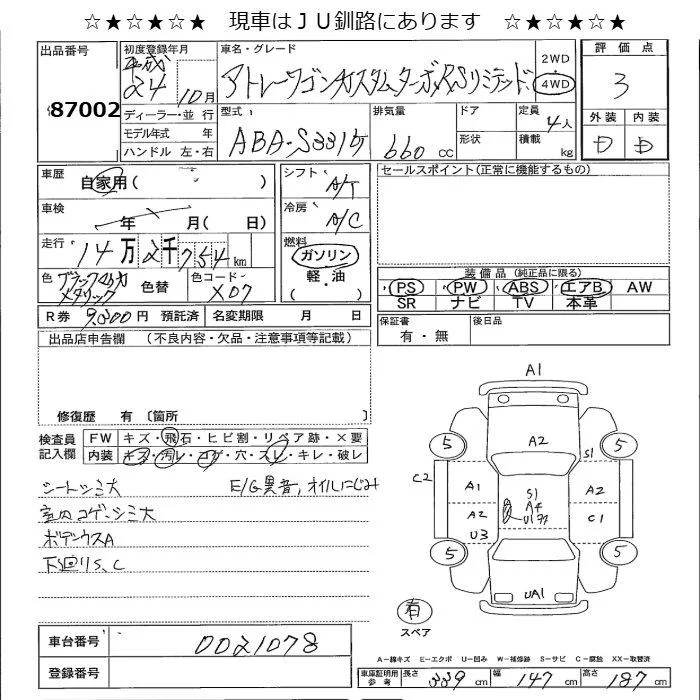 ☆★☆★☆★ 現車はＪＵ釧路にあります ☆★☆★☆★
出品番号 87002
初度登録年月 平成 24 10月
車名・グレード アトレーワゴンカスタムターボRSリミテッド
2WD
4WD
評価点 3
外装 内装
D D
ディーラー・並行
モデル年式 年
ハンドル 左・右
型式 ABA-S331G
排気量 660 cc
ドア
形状
定員 4人
積載 kg
車歴 自家用( )
車検 年 月( 日)
走行 14万2千754km
色 ブラックマイカメタリック 色替
色コード X07
シフト A/T
冷房 A/C
燃料 ガソリン
軽・油
セールスポイント(正常に機能するもの)
装備品 (純正品に限る)
PS PW ABS エアB AW
SR ナビ TV 本革
R券 9,800円 預託済 名変期限 月 日
保証書 有・無
後日品
出品店申告欄 (不良内容・欠品・注意事項等記載)
修復歴 有 〔箇所
検査員記入欄
FW キズ・飛石・ヒビ割・リペア跡・×要
内装 キズ・汚レ・コゲ・穴・スレ・キレ・破レ
シートシミ大 E/G異音,オイルにじみ
室内コゲ・シミ大
ボデーウスA
下回りS、C
A1
5 A2 5
S1
C2 A1 S1 A2
A2 A4 C1
U3
5 5
UA1
有
スペア
車台番号 0021078
登録番号
A-線キズ E-エクボ U-凹み W-補修跡 S-サビ C-腐蝕 XX-取替済
車庫証明用参考 長さ 339cm 幅 147cm 高さ 187cm